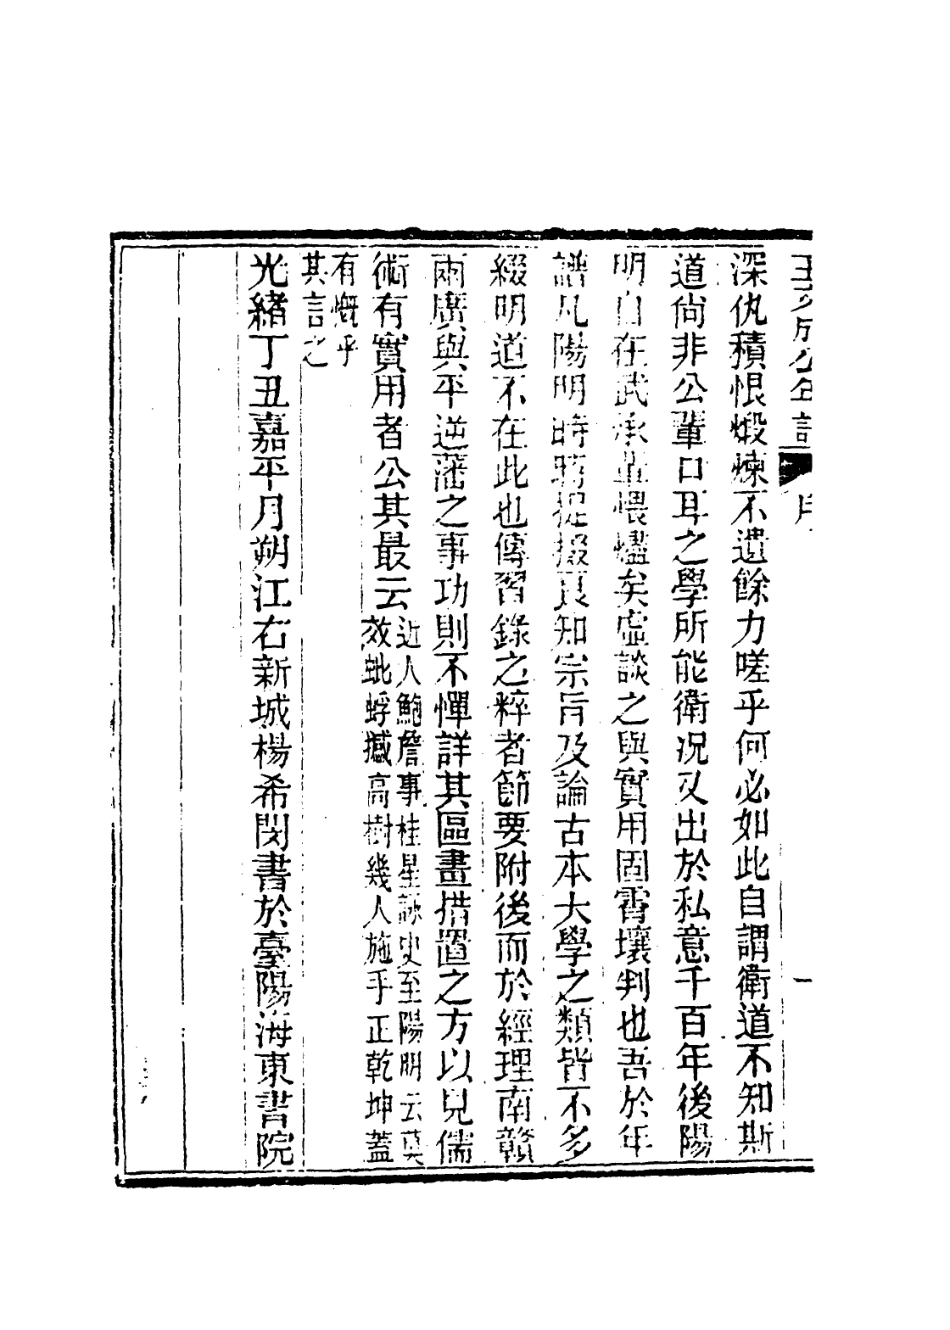 王文成公年譜 序 一
深仇積恨煅煉不遺餘力嗟乎何必如此自謂衛道不知斯
道尙非公輩口耳之學所能衛况又出於私意千百年後陽
明自在武承輩煨燼矣虛談之與實用固霄壤判也吾於年
譜凡陽明時時提掇良知宗旨及論古本大學之類皆不多
綴明道不在此也傳習錄之粹者節要附後而於經理南贛
兩廣與平逆藩之事功則不憚詳其區畫措置之方以見儒
術有實用者公其最云
近人鮑詹事桂星詠史至陽明云莫
效蚍蜉撼高樹幾人施手正乾坤蓋
有慨乎
其言之
光緒丁丑嘉平月朔江右新城楊希閔書於臺陽海東書院